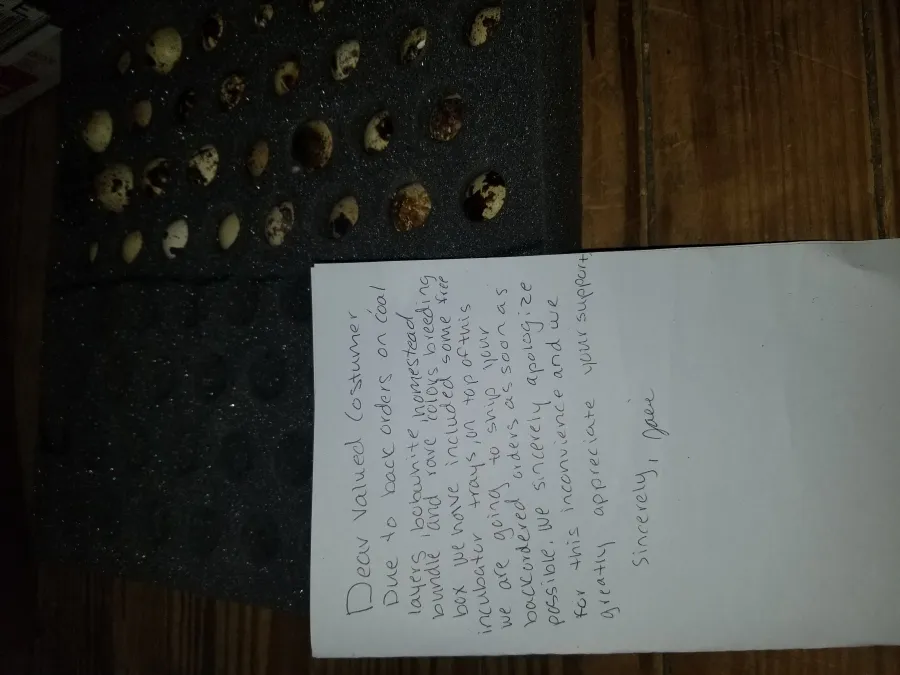 Dear Valued Costumer
Due to back orders on coal
layers, bobwhite, homestead
bundle, and rare colors breeding
box we have included some free
incubator trays, on top of this
we are going to ship your
backordered orders as soon as
possible. We sincerely apologize
for this inconvience and we
greatly appreciate your support,
Sincerely, Jaei